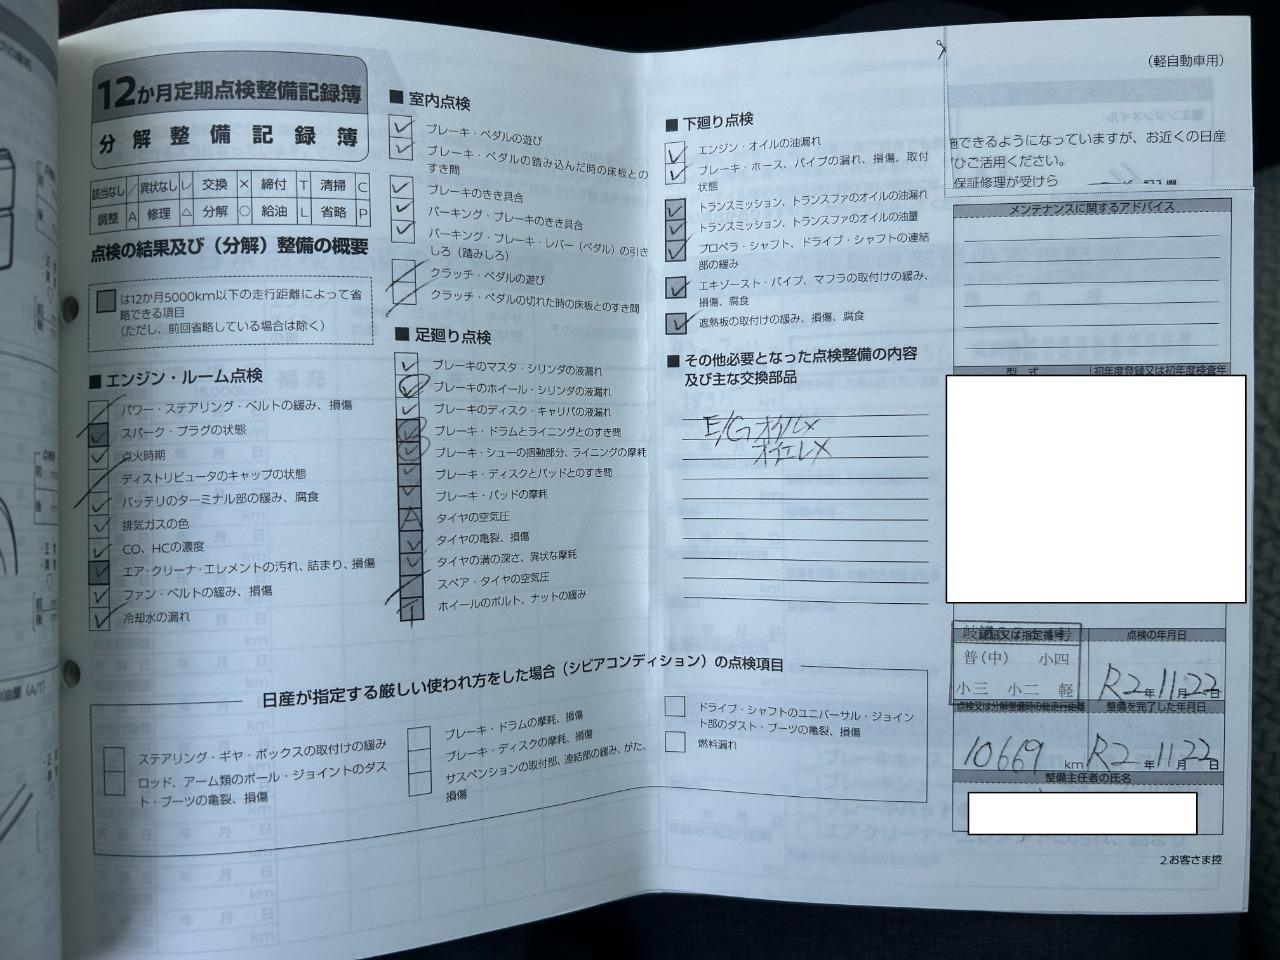 12か月定期点検整備記録簿
分解整備記録簿
該当なし ／ 異状なし レ 交換 × 締付 T 清掃 C
調整 A 修理 △ 分解 ○ 給油 L 省略 P
点検の結果及び（分解）整備の概要
は12か月5000km以下の走行距離によって省
略できる項目
（ただし、前回省略している場合は除く）
■ エンジン・ルーム点検
パワー・ステアリング・ベルトの緩み、損傷
スパーク・プラグの状態
点火時期
ディストリビュータのキャップの状態
バッテリのターミナル部の緩み、腐食
排気ガスの色
CO、HCの濃度
エア・クリーナ・エレメントの汚れ、詰まり、損傷
ファン・ベルトの緩み、損傷
冷却水の漏れ
■ 室内点検
ブレーキ・ペダルの遊び
ブレーキ・ペダルの踏み込んだ時の床板との
すき間
ブレーキのきき具合
パーキング・ブレーキのきき具合
パーキング・ブレーキ・レバー（ペダル）の引き
しろ（踏みしろ）
クラッチ・ペダルの遊び
クラッチ・ペダルの切れた時の床板とのすき間
■ 足廻り点検
ブレーキのマスタ・シリンダの液漏れ
ブレーキのホイール・シリンダの液漏れ
ブレーキのディスク・キャリパの液漏れ
ブレーキ・ドラムとライニングとのすき間
ブレーキ・シューの摺動部分、ライニングの摩耗
ブレーキ・ディスクとパッドとのすき間
ブレーキ・パッドの摩耗
A タイヤの空気圧
タイヤの亀裂、損傷
タイヤの溝の深さ、異状な摩耗
スペア・タイヤの空気圧
T ホイールのボルト、ナットの緩み
■ 下廻り点検
エンジン・オイルの油漏れ
ブレーキ・ホース、パイプの漏れ、損傷、取付
状態
トランスミッション、トランスファのオイルの油漏れ
トランスミッション、トランスファのオイルの油量
プロペラ・シャフト、ドライブ・シャフトの連結
部の緩み
エキゾースト・パイプ、マフラの取付けの緩み、
損傷、腐食
遮熱板の取付けの緩み、損傷、腐食
■ その他必要となった点検整備の内容
及び主な交換部品
E/G オイル×
オイエレ×
日産が指定する厳しい使われ方をした場合（シビアコンディション）の点検項目
ステアリング・ギヤ・ボックスの取付けの緩み
ロッド、アーム類のボール・ジョイントのダス
ト・ブーツの亀裂、損傷
ブレーキ・ドラムの摩耗、損傷
ブレーキ・ディスクの摩耗、損傷
サスペンションの取付部、連結部の緩み、がた、
損傷
ドライブ・シャフトのユニバーサル・ジョイン
ト部のダスト・ブーツの亀裂、損傷
燃料漏れ
（軽自動車用）
できるようになっていますが、お近くの日産
ひご活用ください。
保証修理が受けら
メンテナンスに関するアドバイス
型式 初年度登録又は初年度検査年
認証又は指定番号 点検の年月日
普（中） 小四
小三 小二 軽
R2年11月22日
点検又は分解整備時の総走行距離 整備を完了した年月日
10669km R2年11月22日
整備主任者の氏名
2.お客さま控